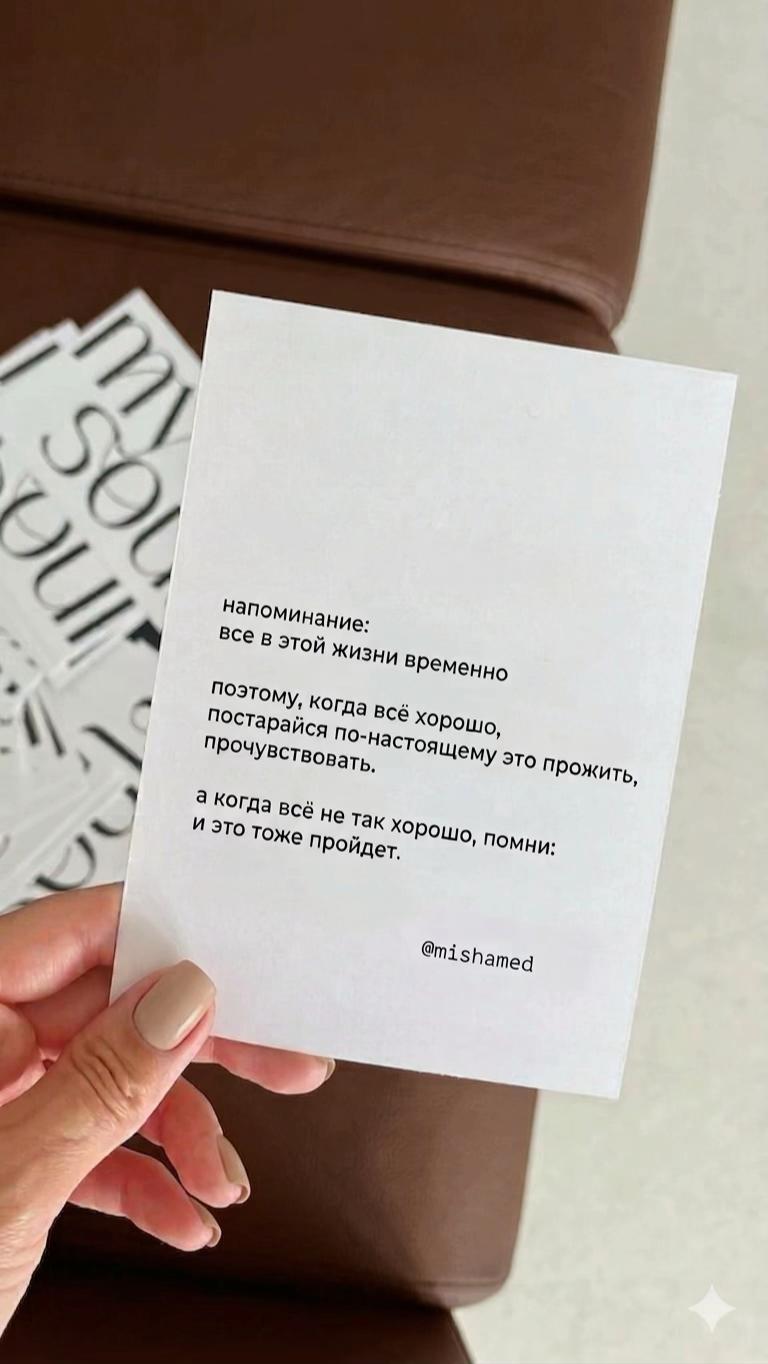 my
sou
напоминание:
все в этой жизни временно
поэтому, когда всё хорошо,
постарайся по-настоящему это прожить,
прочувствовать.
а когда всё не так хорошо, помни:
и это тоже пройдет.
@mishamed